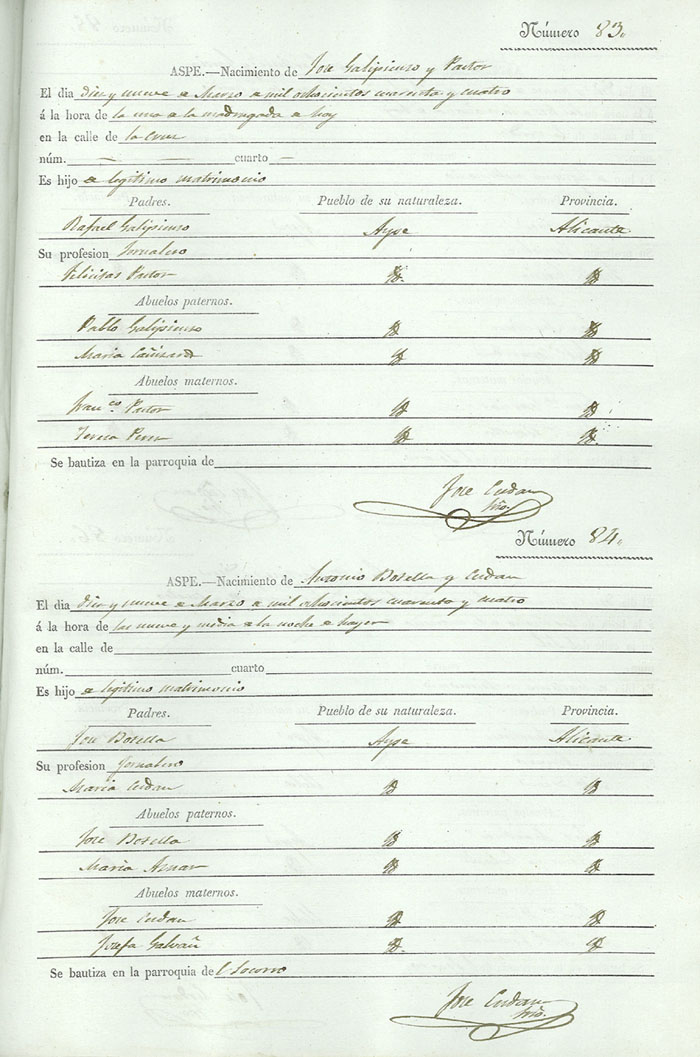 Número 83.
ASPE.—Nacimiento de Jose Galipienso y Pastor
El dia diez y nueve de Marzo de mil ochocientos cuarenta y cuatro
á la hora de la una de la madrugada de hoy
en la calle de la Cruz
núm. — — cuarto —
Es hijo de legitimo matrimonio
Padres. Pueblo de su naturaleza. Provincia.
Rafael Galipienso Aspe Alicante
Su profesion Jornalero
Felicitas Pastor id. id.
Abuelos paternos.
Pablo Galipienso id. id.
Maria Cañizares id. id.
Abuelos maternos.
Fran.co Pastor id. id.
Teresa Perez id. id.
Se bautiza en la parroquia de
Jose
Srio.
Número 84.
ASPE.—Nacimiento de Antonio Botella y
El dia diez y nueve de Marzo de mil ochocientos cuarenta y cuatro
á la hora de las nueve y media de la noche de hayer
en la calle de
núm. cuarto
Es hijo de legitimo matrimonio
Padres. Pueblo de su naturaleza. Provincia.
Jose Botella Aspe Alicante
Su profesion Jornalero
Maria id. id.
Abuelos paternos.
Jose Botella id. id.
Maria Aznar id. id.
Abuelos maternos.
Jose id. id.
Josefa Galvañ id. id.
Se bautiza en la parroquia del Socorro
Jose
Srio.